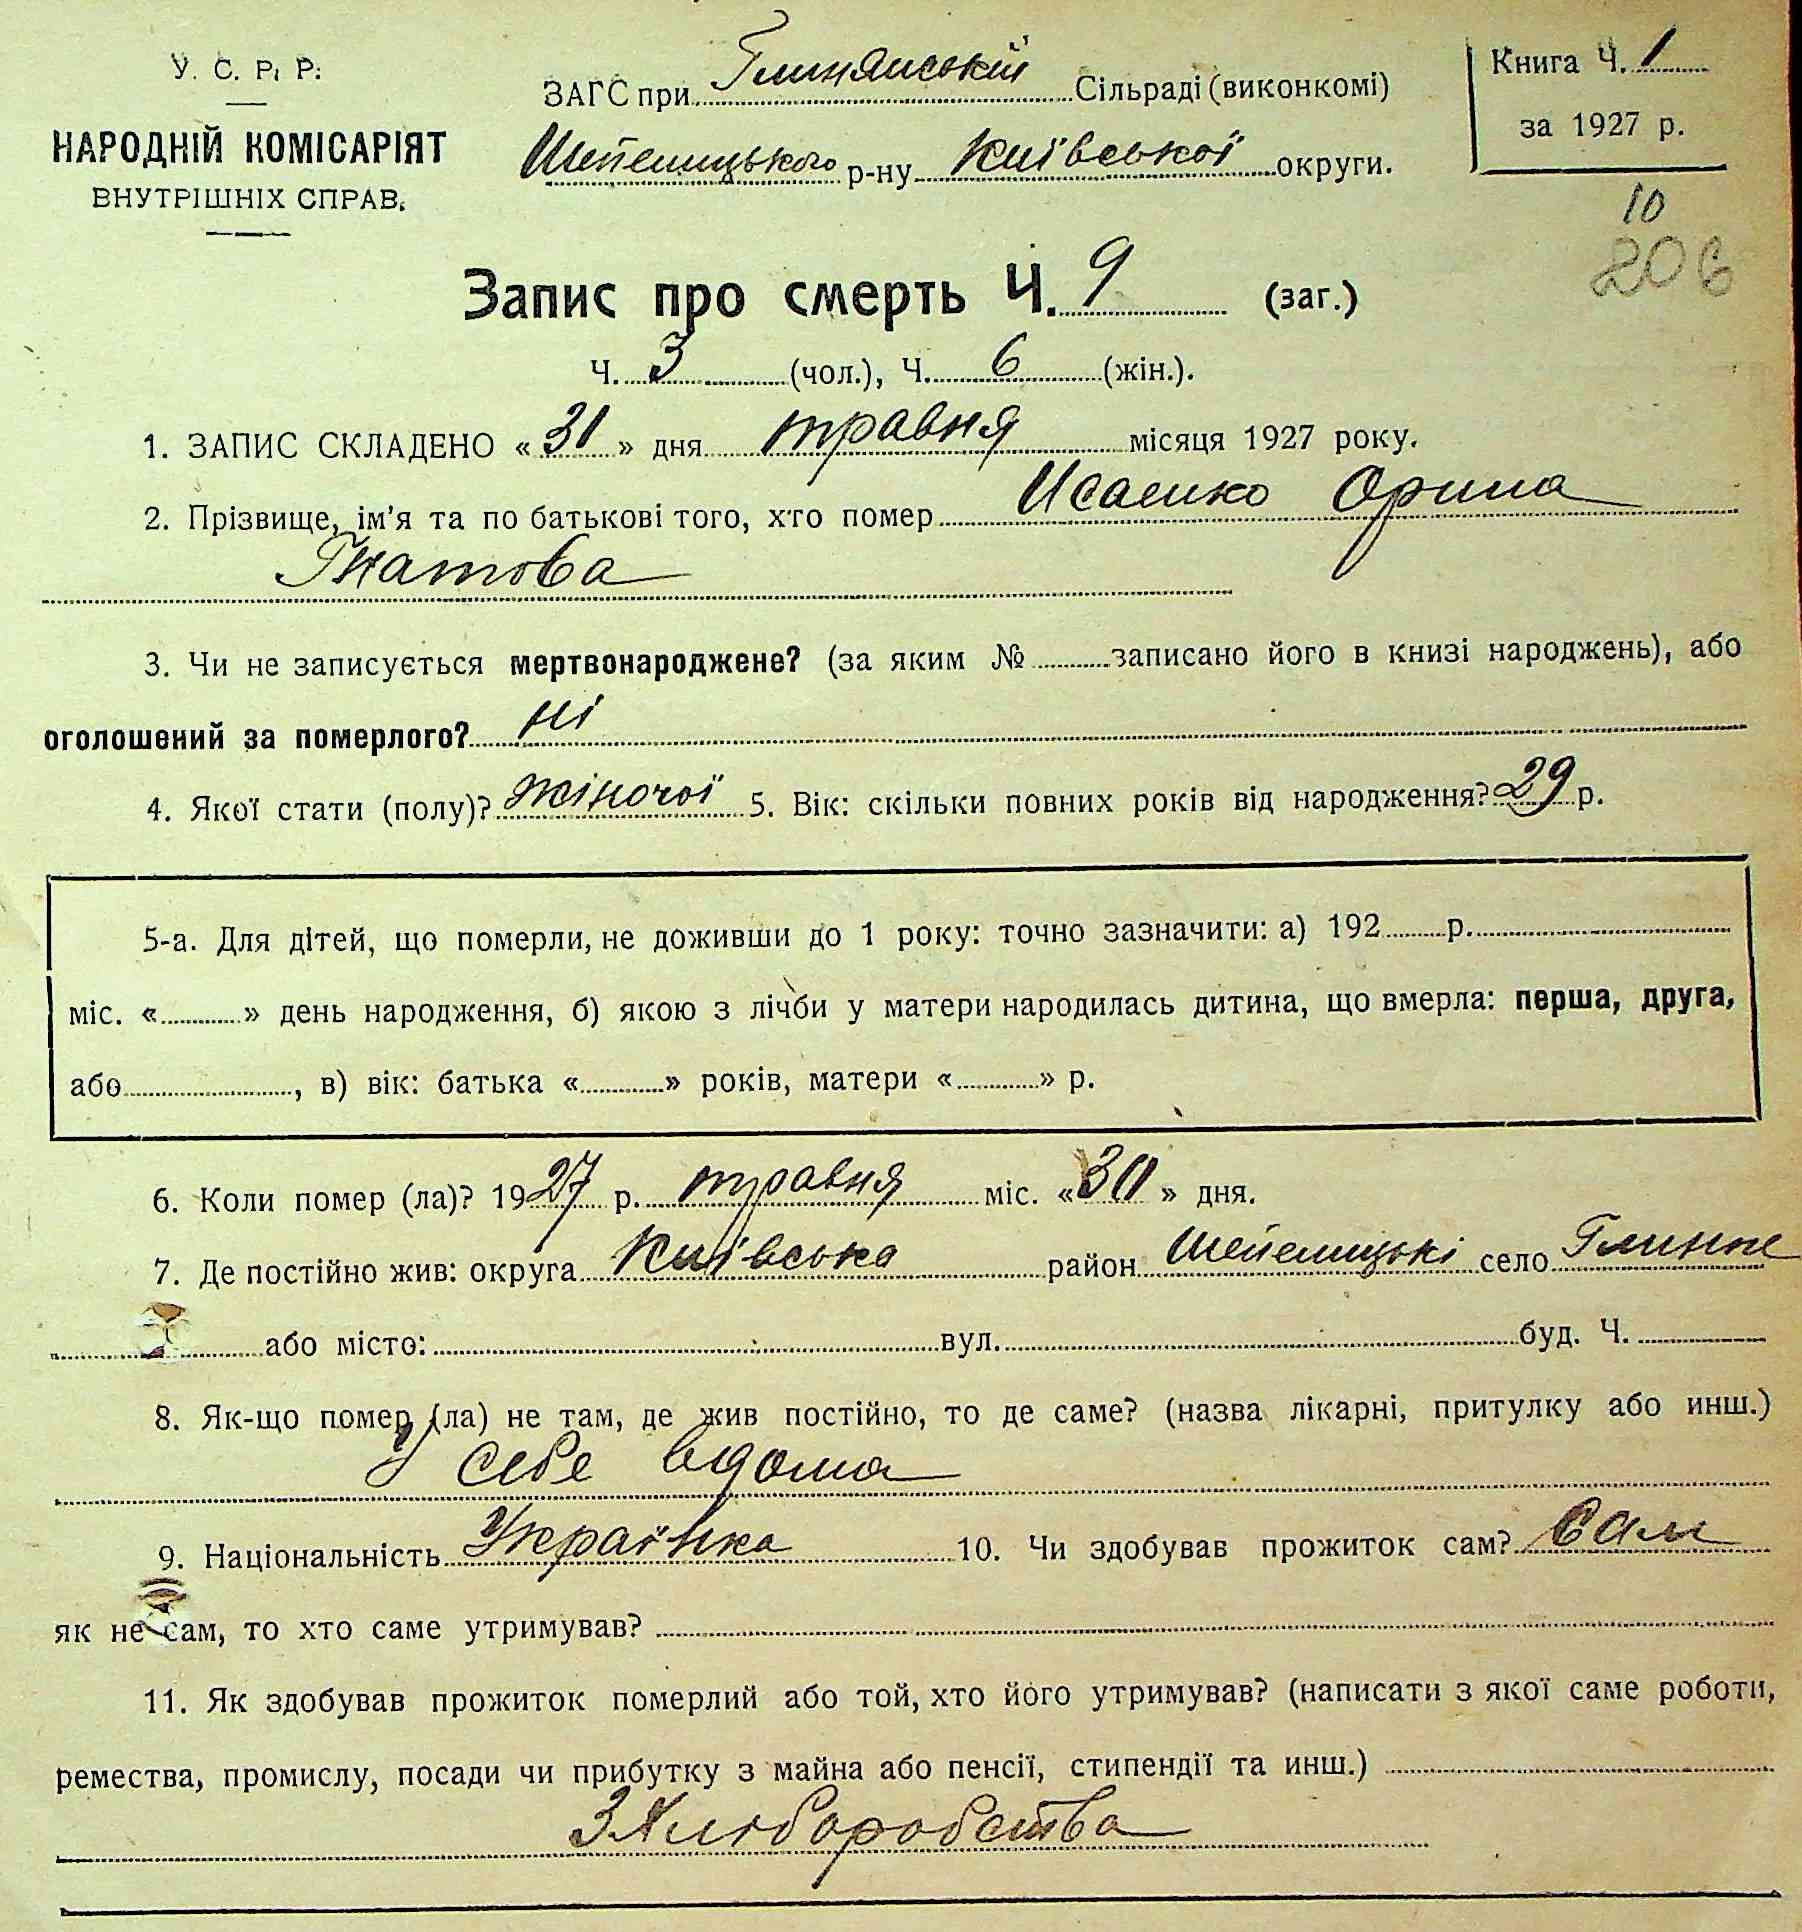 У. С. Р. Р.
НАРОДНІЙ КОМІСАРІЯТ
ВНУТРІШНІХ СПРАВ.
ЗАГС при Глинянській Сільраді (виконкомі)
Шепелицького р-ну Київської округи.
Книга Ч. 1
за 1927 р.
10
206
Запис про смерть Ч. 9 (заг.)
Ч. 3 (чол.), Ч. 6 (жін.).
1. ЗАПИС СКЛАДЕНО « 31 » дня травня місяця 1927 року.
2. Прізвище, ім'я та по батькові того, хто помер Исаенко Орина
Гнатова
3. Чи не записується мертвонароджене? (за яким № записано його в книзі народжень), або
оголошений за померлого? ні
4. Якої стати (полу)? жіночої 5. Вік: скільки повних років від народження? 29 р.
5-а. Для дітей, що померли, не доживши до 1 року: точно зазначити: а) 192 р.
міс. « » день народження, б) якою з лічби у матери народилась дитина, що вмерла: перша, друга,
або , в) вік: батька « » років, матери « » р.
6. Коли помер (ла)? 1927 р. травня міс. « 30 » дня.
7. Де постійно жив: округа Київська район Шепелицькі село Глинне
або місто: вул. буд. Ч.
8. Як-що помер (ла) не там, де жив постійно, то де саме? (назва лікарні, притулку або инш.)
У себе вдома
9. Національність Українка 10. Чи здобував прожиток сам? Сам
як не сам, то хто саме утримував?
11. Як здобував прожиток померлий або той, хто його утримував? (написати з якої саме роботи,
ремества, промислу, посади чи прибутку з майна або пенсії, стипендії та инш.)
З Хліборобства